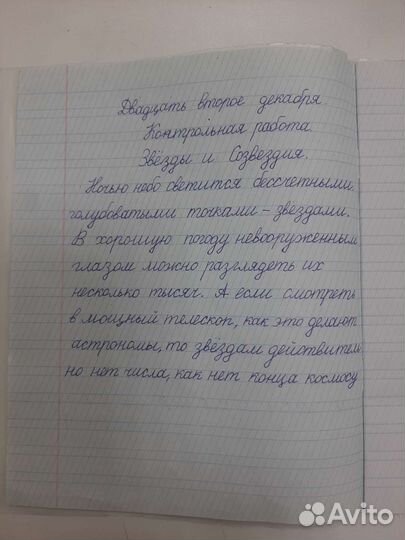 Двадцать второе декабря
Контрольная работа.
Звёзды и Созвездия.
Ночью небо светится бессчетными
голубоватыми точками – звездами.
В хорошую погоду невооруженным
глазом можно разглядеть их
несколько тысяч. А если смотреть
в мощный телескоп, как это делают
астрономы, то звёздам действитель
но нет числа, как нет конца космосу
Avito